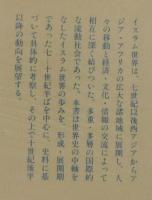 イスラム世界は、七世紀以後西アジアからア
ジア・アフリカの広大な諸地域に展開し、人
々の移動と経済・文化・情報の交流によって
相互に深く結びついた、多重・多層の国際的
な流動社会であった。本書は世界史の中軸を
なしたイスラム世界の歩みを、形成・展開期
であった七〜十世紀半ばを中心に、史料に基
づいて具体的に考察し、その上で十世紀後半
以降の動向を展望する。